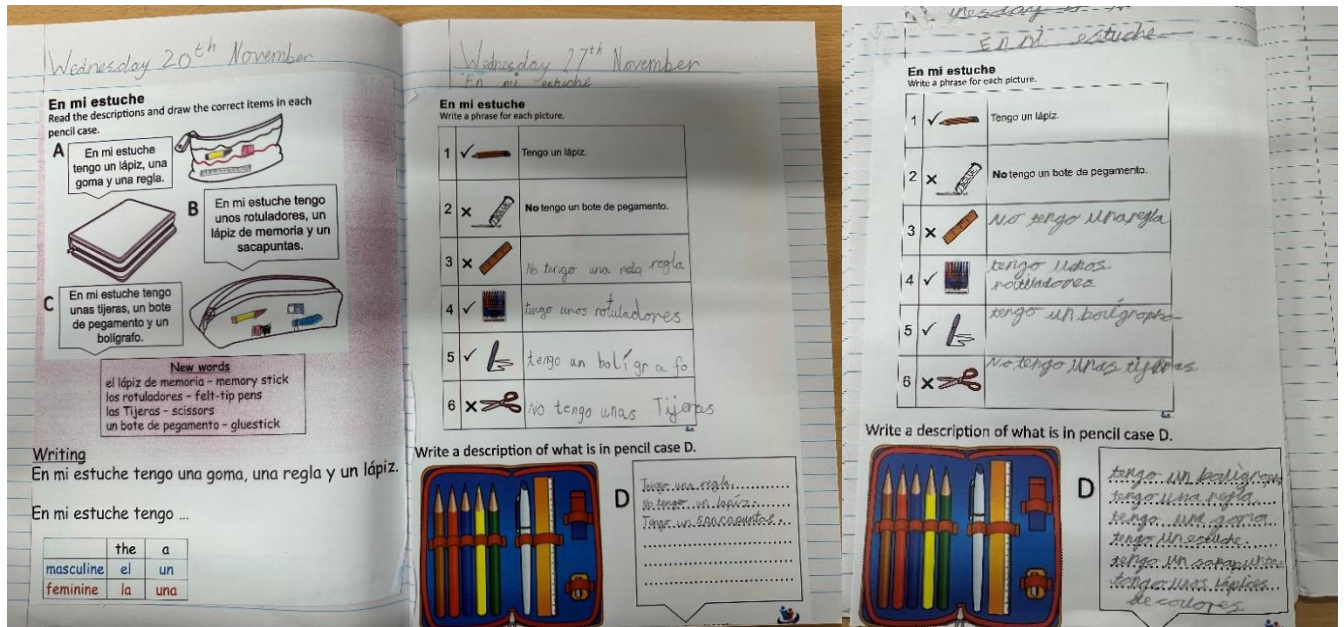 Wednesday 20th November
En mi estuche
Read the descriptions and draw the correct items in each
pencil case.
A
En mi estuche
tengo un lápiz, una
goma y una regla.
B
En mi estuche tengo
unos rotuladores, un
lápiz de memoria y un
sacapuntas.
C
En mi estuche tengo
unas tijeras, un bote
de pegamento y un
bolígrafo.
New words
el lápiz de memoria – memory stick
los rotuladores – felt-tip pens
las Tijeras – scissors
un bote de pegamento - gluestick
Writing
En mi estuche tengo una goma, una regla y un lápiz.
En mi estuche tengo ...
the a
masculine el un
feminine la una
Wednesday 27th November
En mi estuche
En mi estuche
Write a phrase for each picture.
1 Tengo un lápiz.
2 No tengo un bote de pegamento.
3 No tengo una regla
4 tengo unos rotuladores
5 tengo un bolígrafo
6 No tengo unas Tijeras
Write a description of what is in pencil case D.
D
Tengo una regla.
No tengo un lapíz.
Tengo un
En mi estuche
En mi estuche
Write a phrase for each picture.
1 Tengo un lápiz.
2 No tengo un bote de pegamento.
3 No tengo una regla
4 tengo unos
5 tengo un
6 No tengo unas tijeras
Write a description of what is in pencil case D.
D
tengo un
tengo una regla
tengo una goma
tengo un estuche.
tengo un
tengo unos lápices
de colores